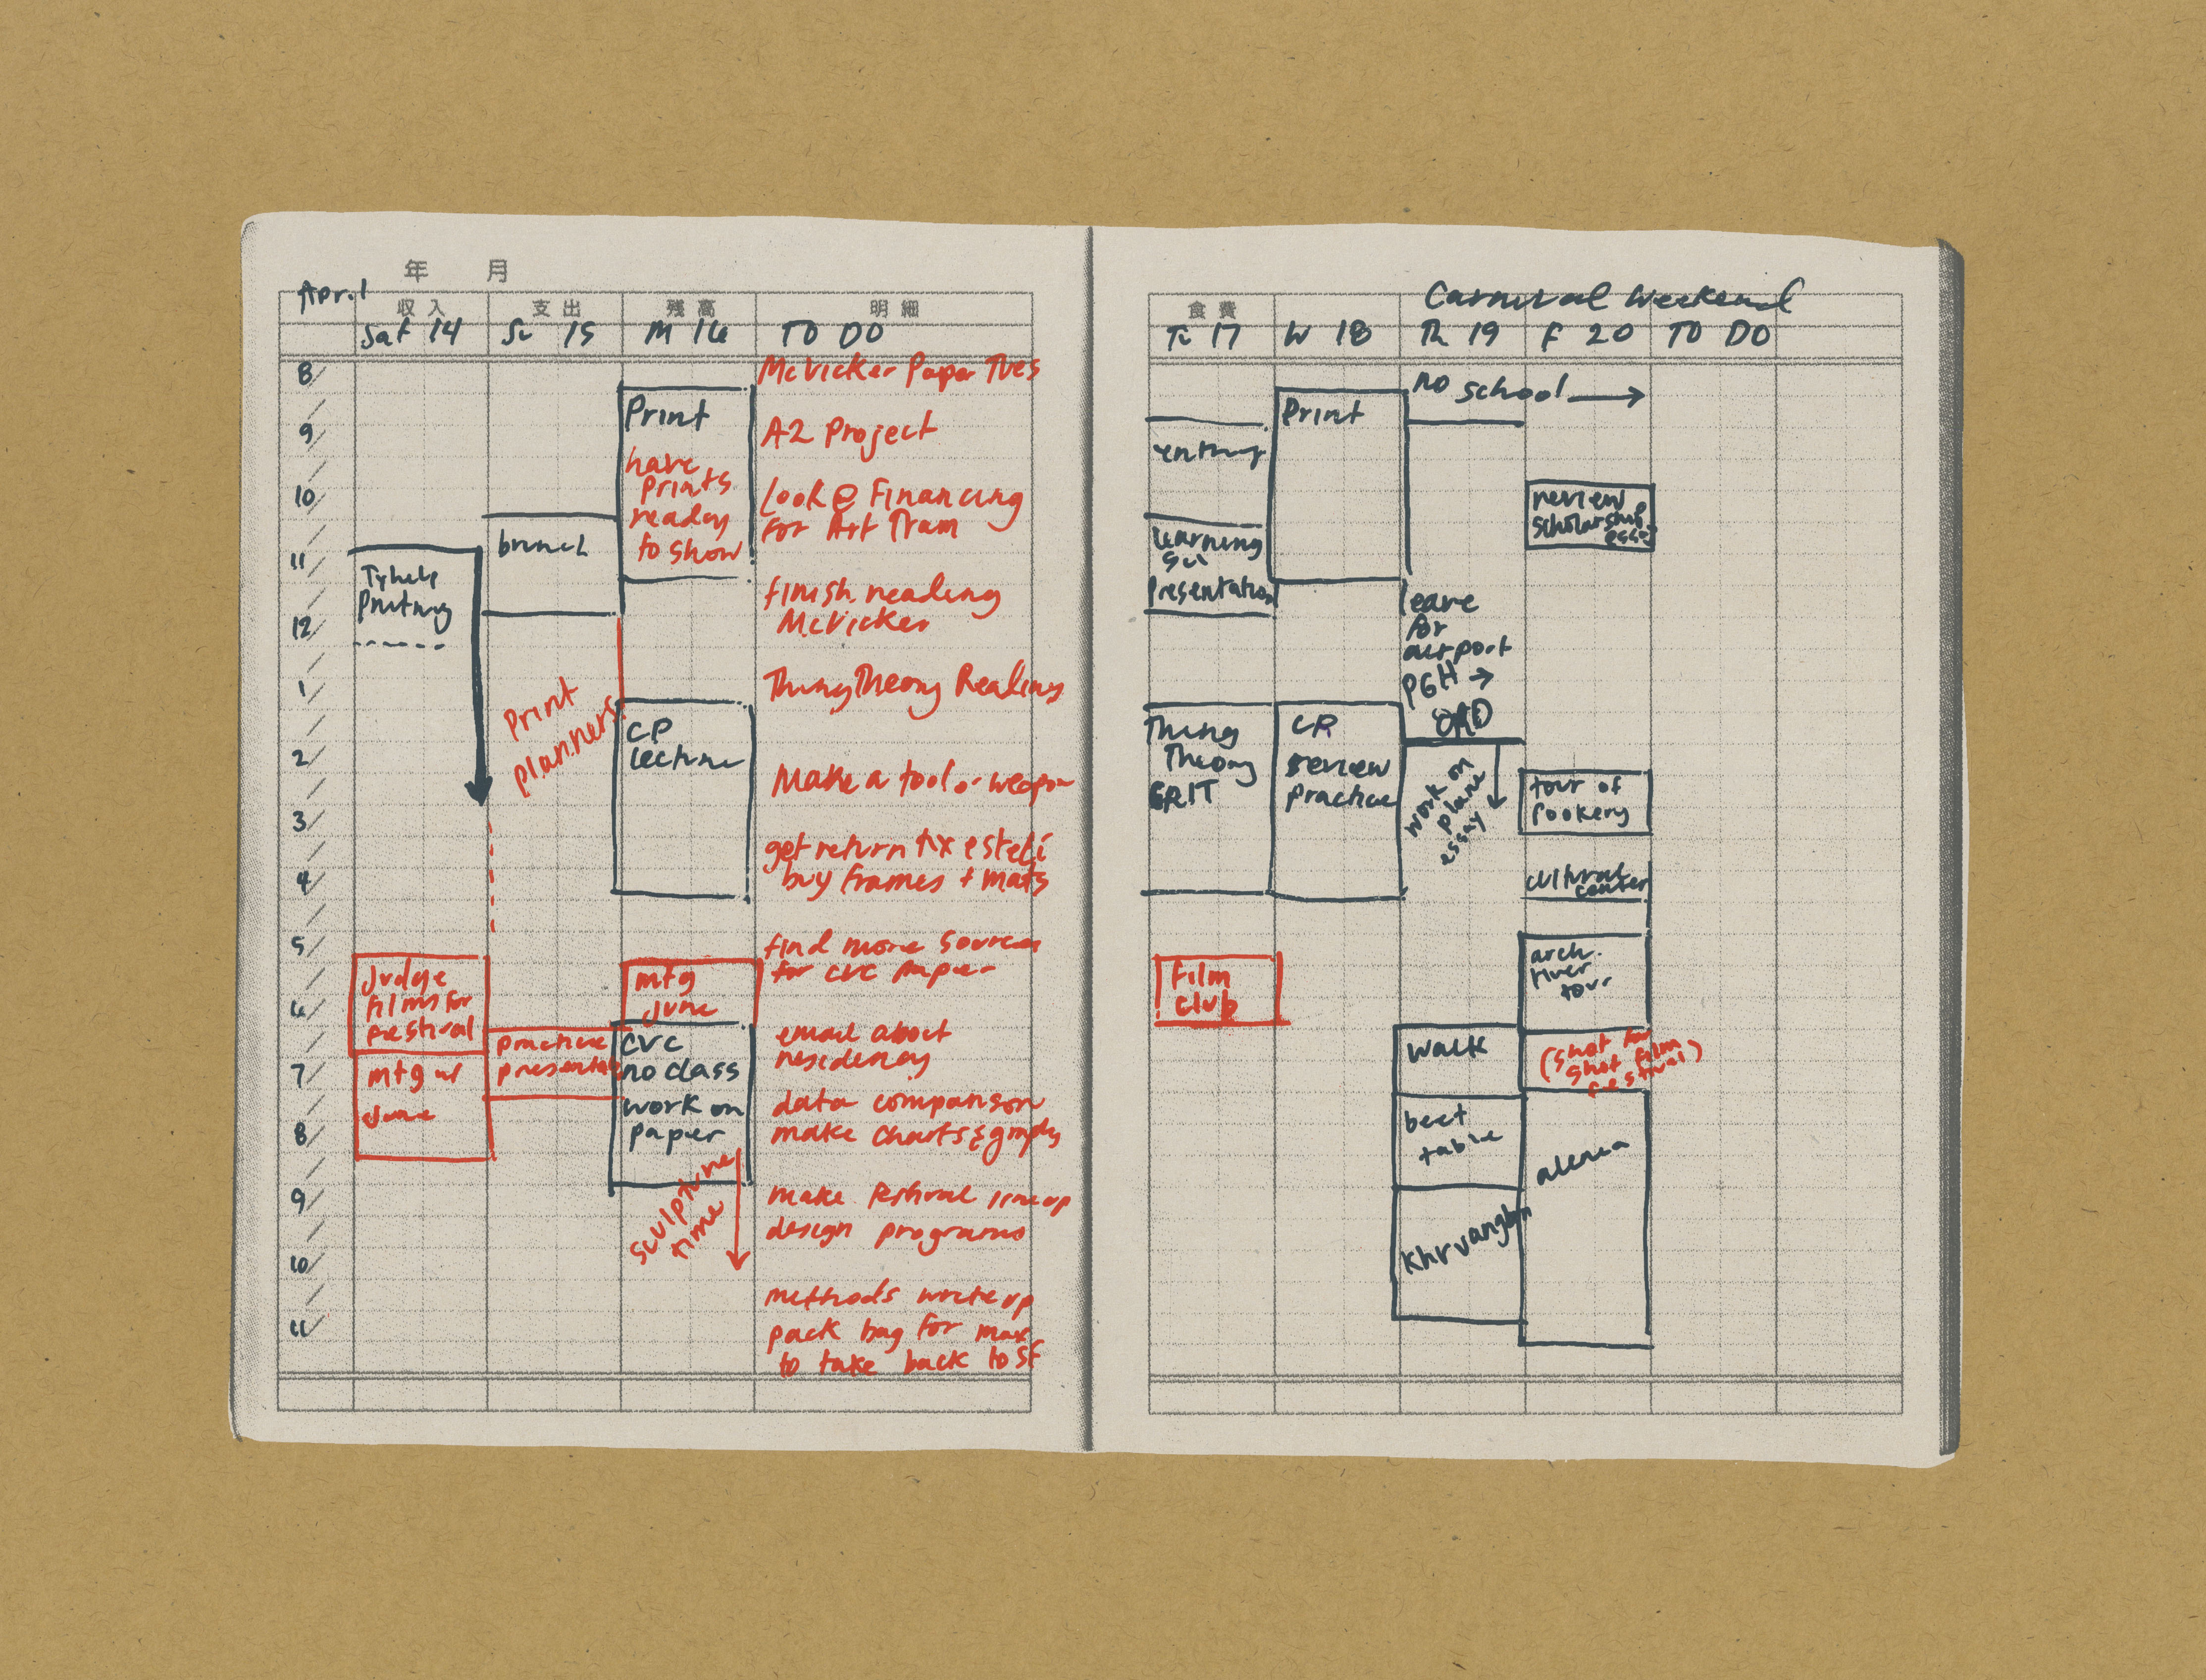 年 月
April
収入 支出 残高 明細
Sat 14 Su 15 M 16 TO DO
8
9
10
11
12
1
2
3
4
5
6
7
8
9
10
11
Printing
Judge
films for
festival
mtg w/
June
brunch
Print
planners
practice
Print
have
prints
ready
to show
CP
lecture
mtg
June
CVC
no class
work on
paper
sculpture
time
McVicker Paper Tues
A2 Project
Look @ Financing
for Art Tram
finish reading
McVicker
Thing Theory Readings
Make a tool or weapon
get return tix esteli
buy frames + mats
find more sources
for CVC paper
email about
residency
data comparison
make charts & graphs
make festival lineup
design programs
methods write up
pack bag for max
to take back to SF
Carnival Weekend
食費
Tu 17 W 18 Th 19 F 20 TO DO
learning
sci
presentation
Thing
Theory
GRIT
Film
club
Print
CP
review
practice
no school →
leave
for
airport
PGH →
ORD
work on
plane
essay
walk
beet
table
Khruangbin
review
scholarship
essay
tour of
rookery
cultural
center
arch.
river
tour
(shot for
shot film
festival)
alenia